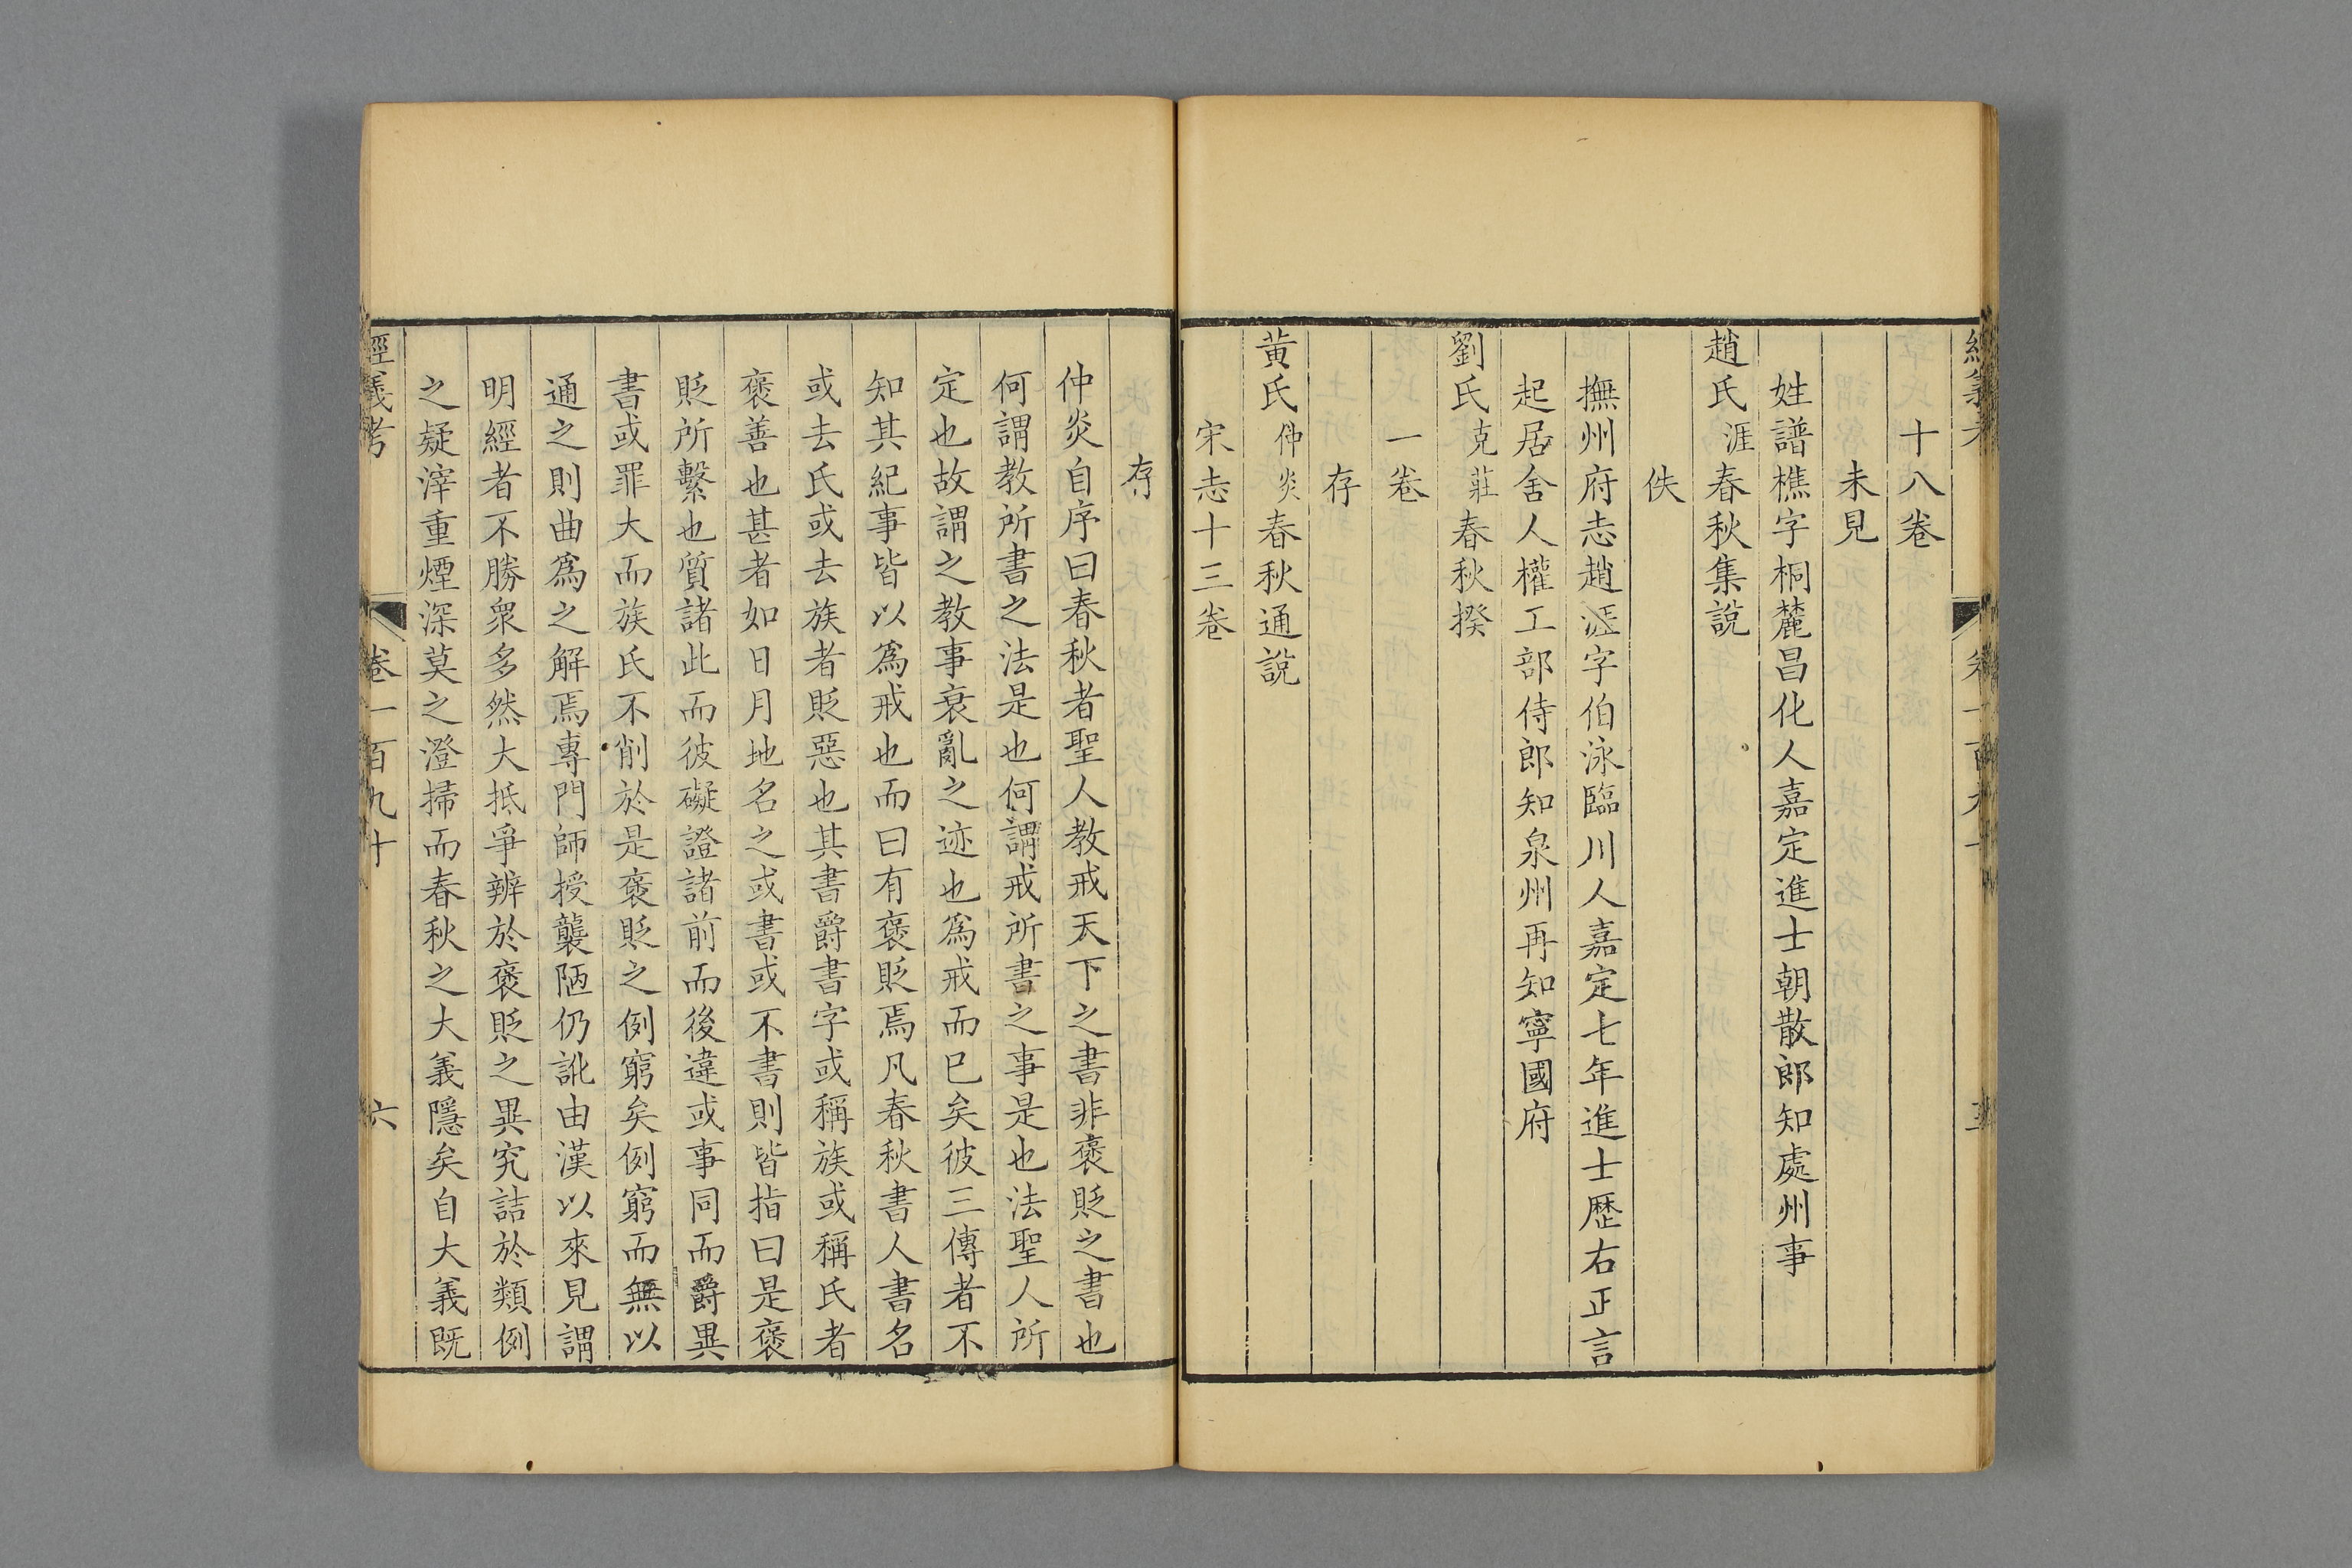 十八卷
未見
姓譜樵字桐麓昌化人嘉定進士朝散郎知處州事
趙氏涯春秋集說
佚
撫州府志趙涯字伯泳臨川人嘉定七年進士歷右正言
起居舍人權工部侍郎知泉州再知寧國府
劉氏克莊春秋揆
一卷
存
黃氏仲炎春秋通說
宋志十三卷
存
仲炎自序曰春秋者聖人教戒天下之書非褒貶之書也
何謂教所書之法是也何謂戒所書之事是也法聖人所
定也故謂之教事衰亂之迹也為戒而已矣彼三傳者不
知其紀事皆以為戒也而曰有褒貶焉凡春秋書人書名
或去氏或去族者貶惡也其書爵書字或稱族或稱氏者
褒善也甚者如日月地名之或書或不書則皆指曰是褒
貶所繫也質諸此而彼礙證諸前而後違或事同而爵異
書或罪大而族氏不削於是褒貶之例窮矣例窮而無以
通之則曲為之解焉專門師授襲陋仍訛由漢以來見謂
明經者不勝眾多然大抵爭辨於褒貶之異究詰於類例
之疑滓重煙深莫之澄掃而春秋之大義隱矣自大義既
經義考
卷一百九十
六